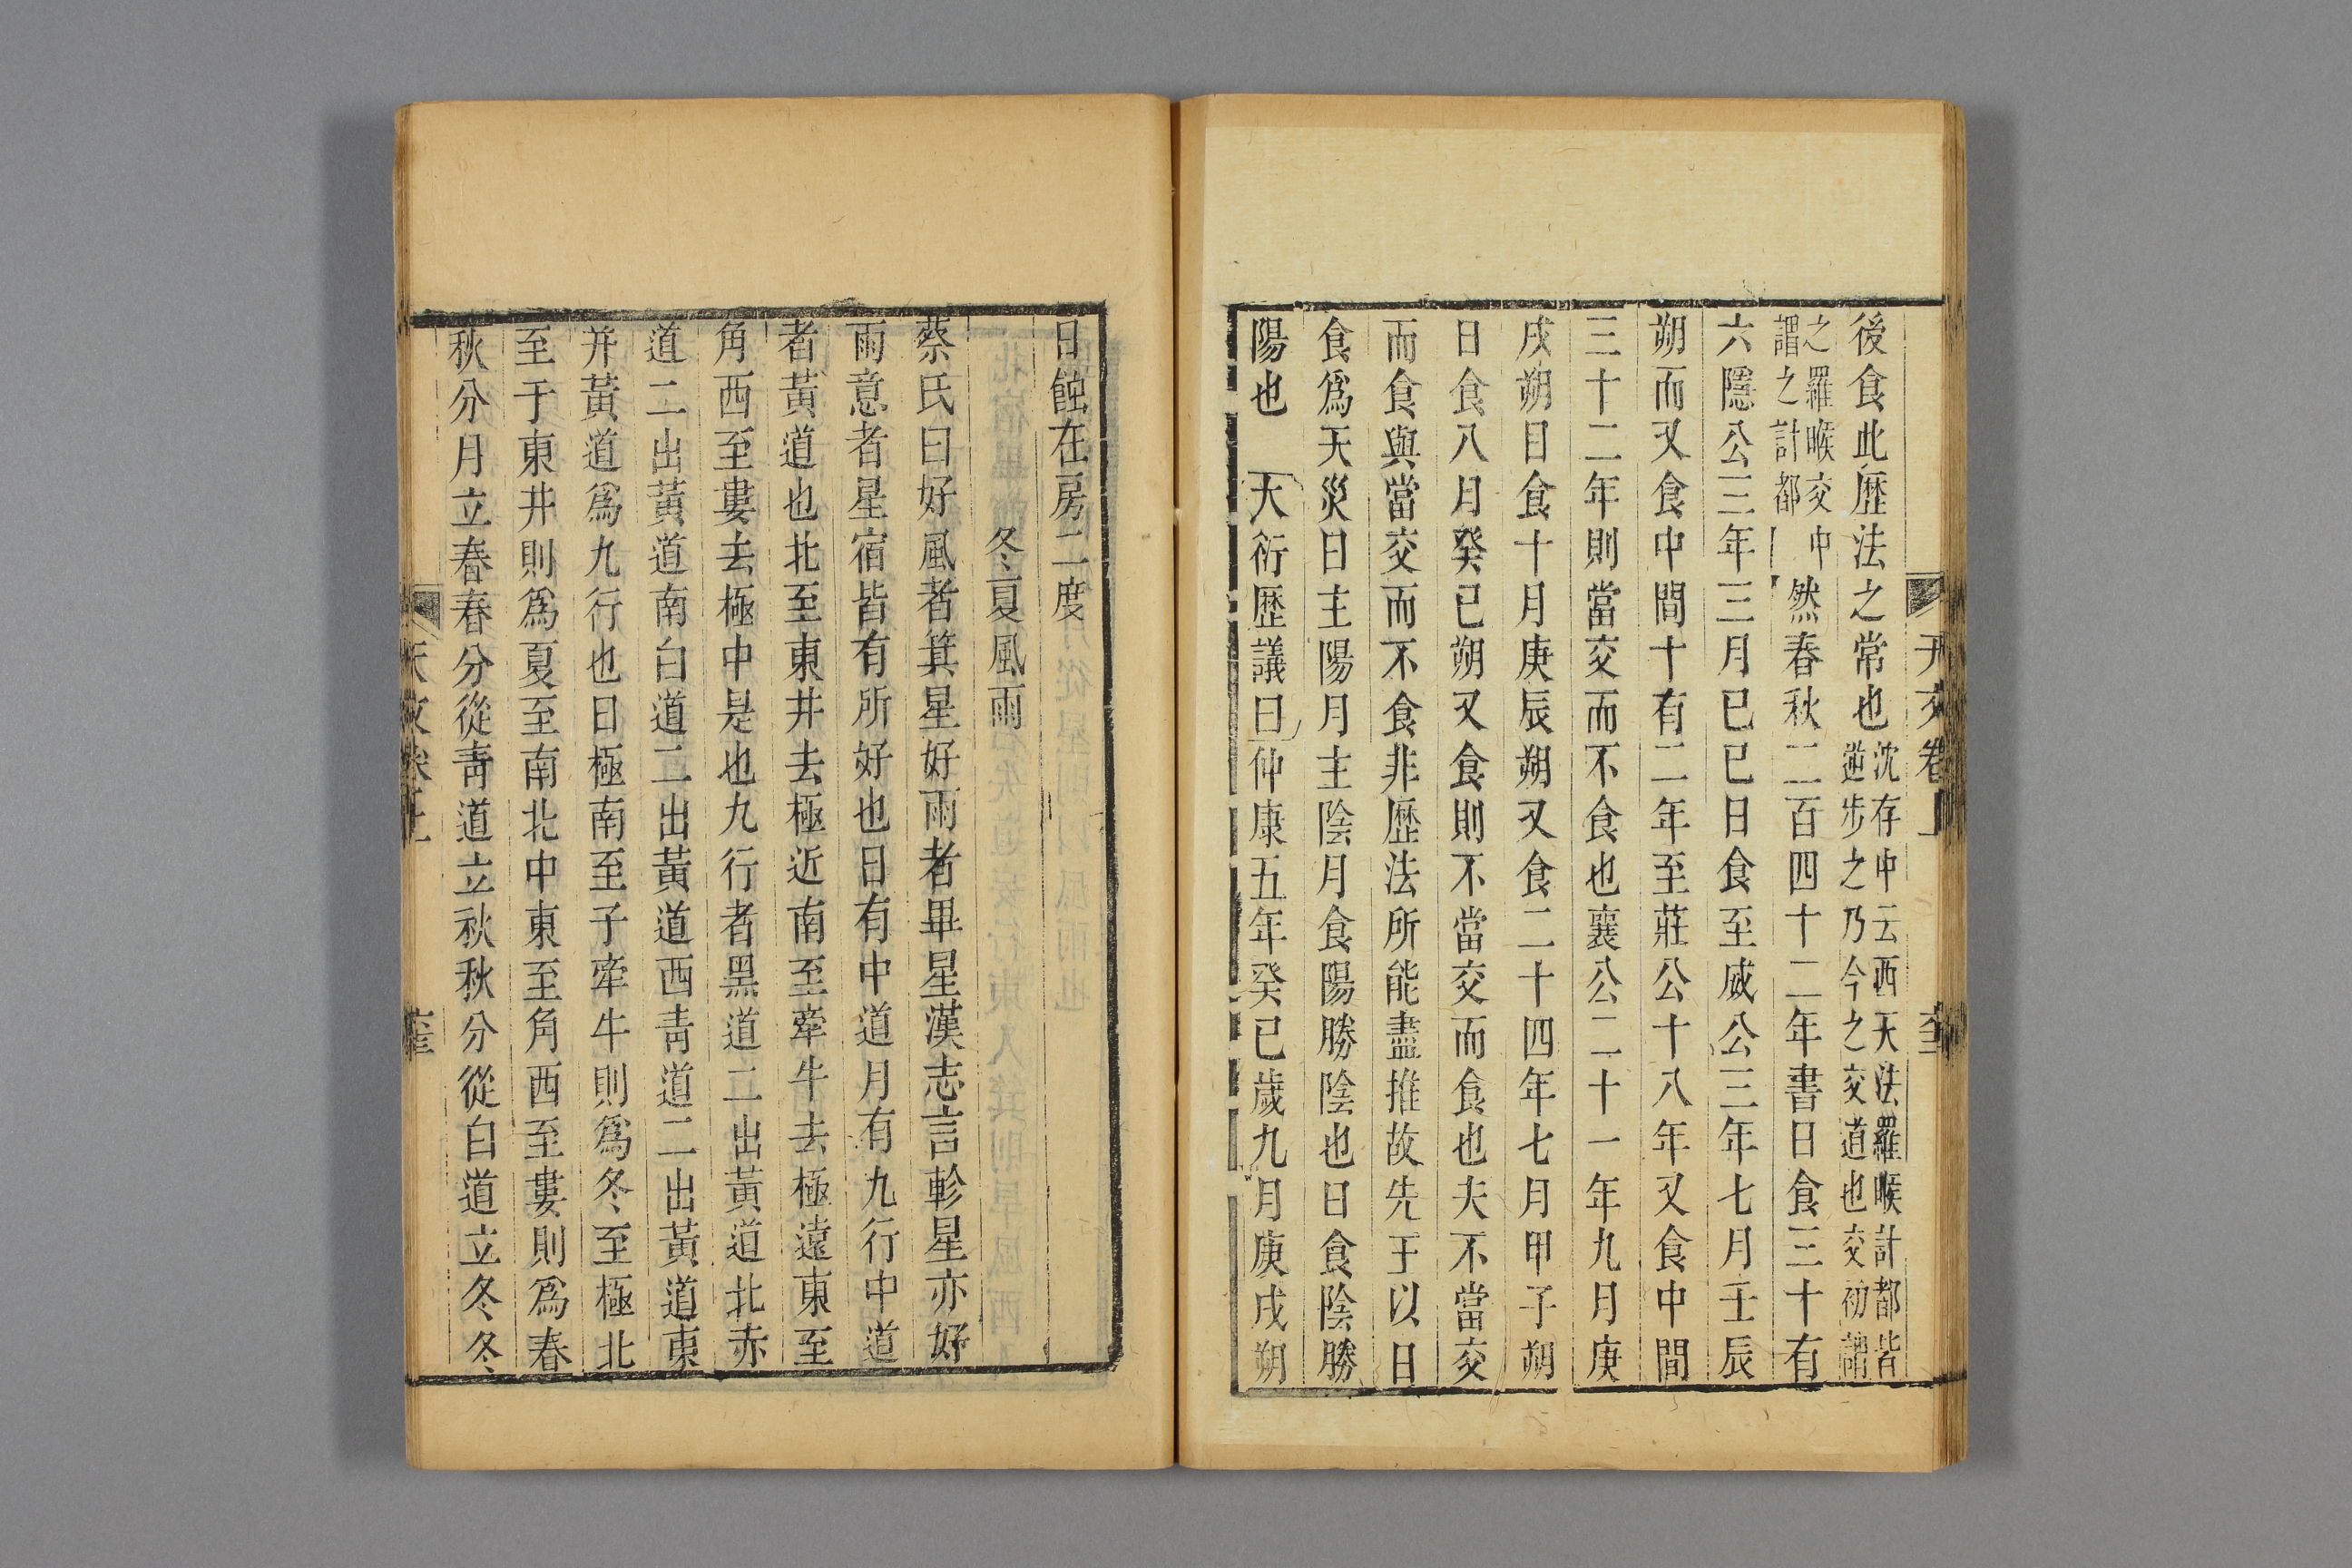 後食此歷法之常也沈存中云西天法羅㬋計都皆逆步之乃今之交道也交初謂
之羅㬋交中謂之計都然春秋二百四十二年書日食三十有
六隱公三年三月已巳日食至威公三年七月壬辰
朔而又食中間十有二年至莊公十八年又食中間
三十二年則當交而不食也襄公二十一年九月庚
戌朔日食十月庚辰朔又食二十四年七月甲子朔
日食八月癸巳朔又食則不當交而食也夫不當交
而食與當交而不食非歷法所能盡推故先王以日
食爲天災日主陽月主陰月食陽勝陰也日食陰勝
陽也 大衍歷議曰仲康五年癸巳歲九月庚戌朔
天文卷上
日蝕在房二度
冬夏風雨
蔡氏曰好風者箕星好雨者畢星漢志言軫星亦好
雨意者星宿皆有所好也日有中道月有九行中道
者黃道也北至東井去極近南至牽牛去極遠東至
角西至婁去極中是也九行者黑道二出黃道北赤
道二出黃道南白道二出黃道西青道二出黃道東
并黃道爲九行也日極南至于牽牛則爲冬至極北
至于東井則爲夏至南北中東至角西至婁則爲春
秋分月立春春分從青道立秋秋分從白道立冬冬
天文卷上